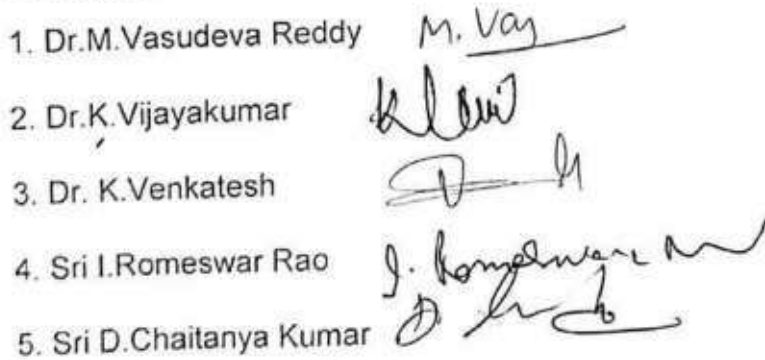 1. Dr.M.Vasudeva Reddy M. Vas
2. Dr.K.Vijayakumar
3. Dr. K.Venkatesh
4. Sri I.Romeswar Rao I. Romeswara
5. Sri D.Chaitanya Kumar D.